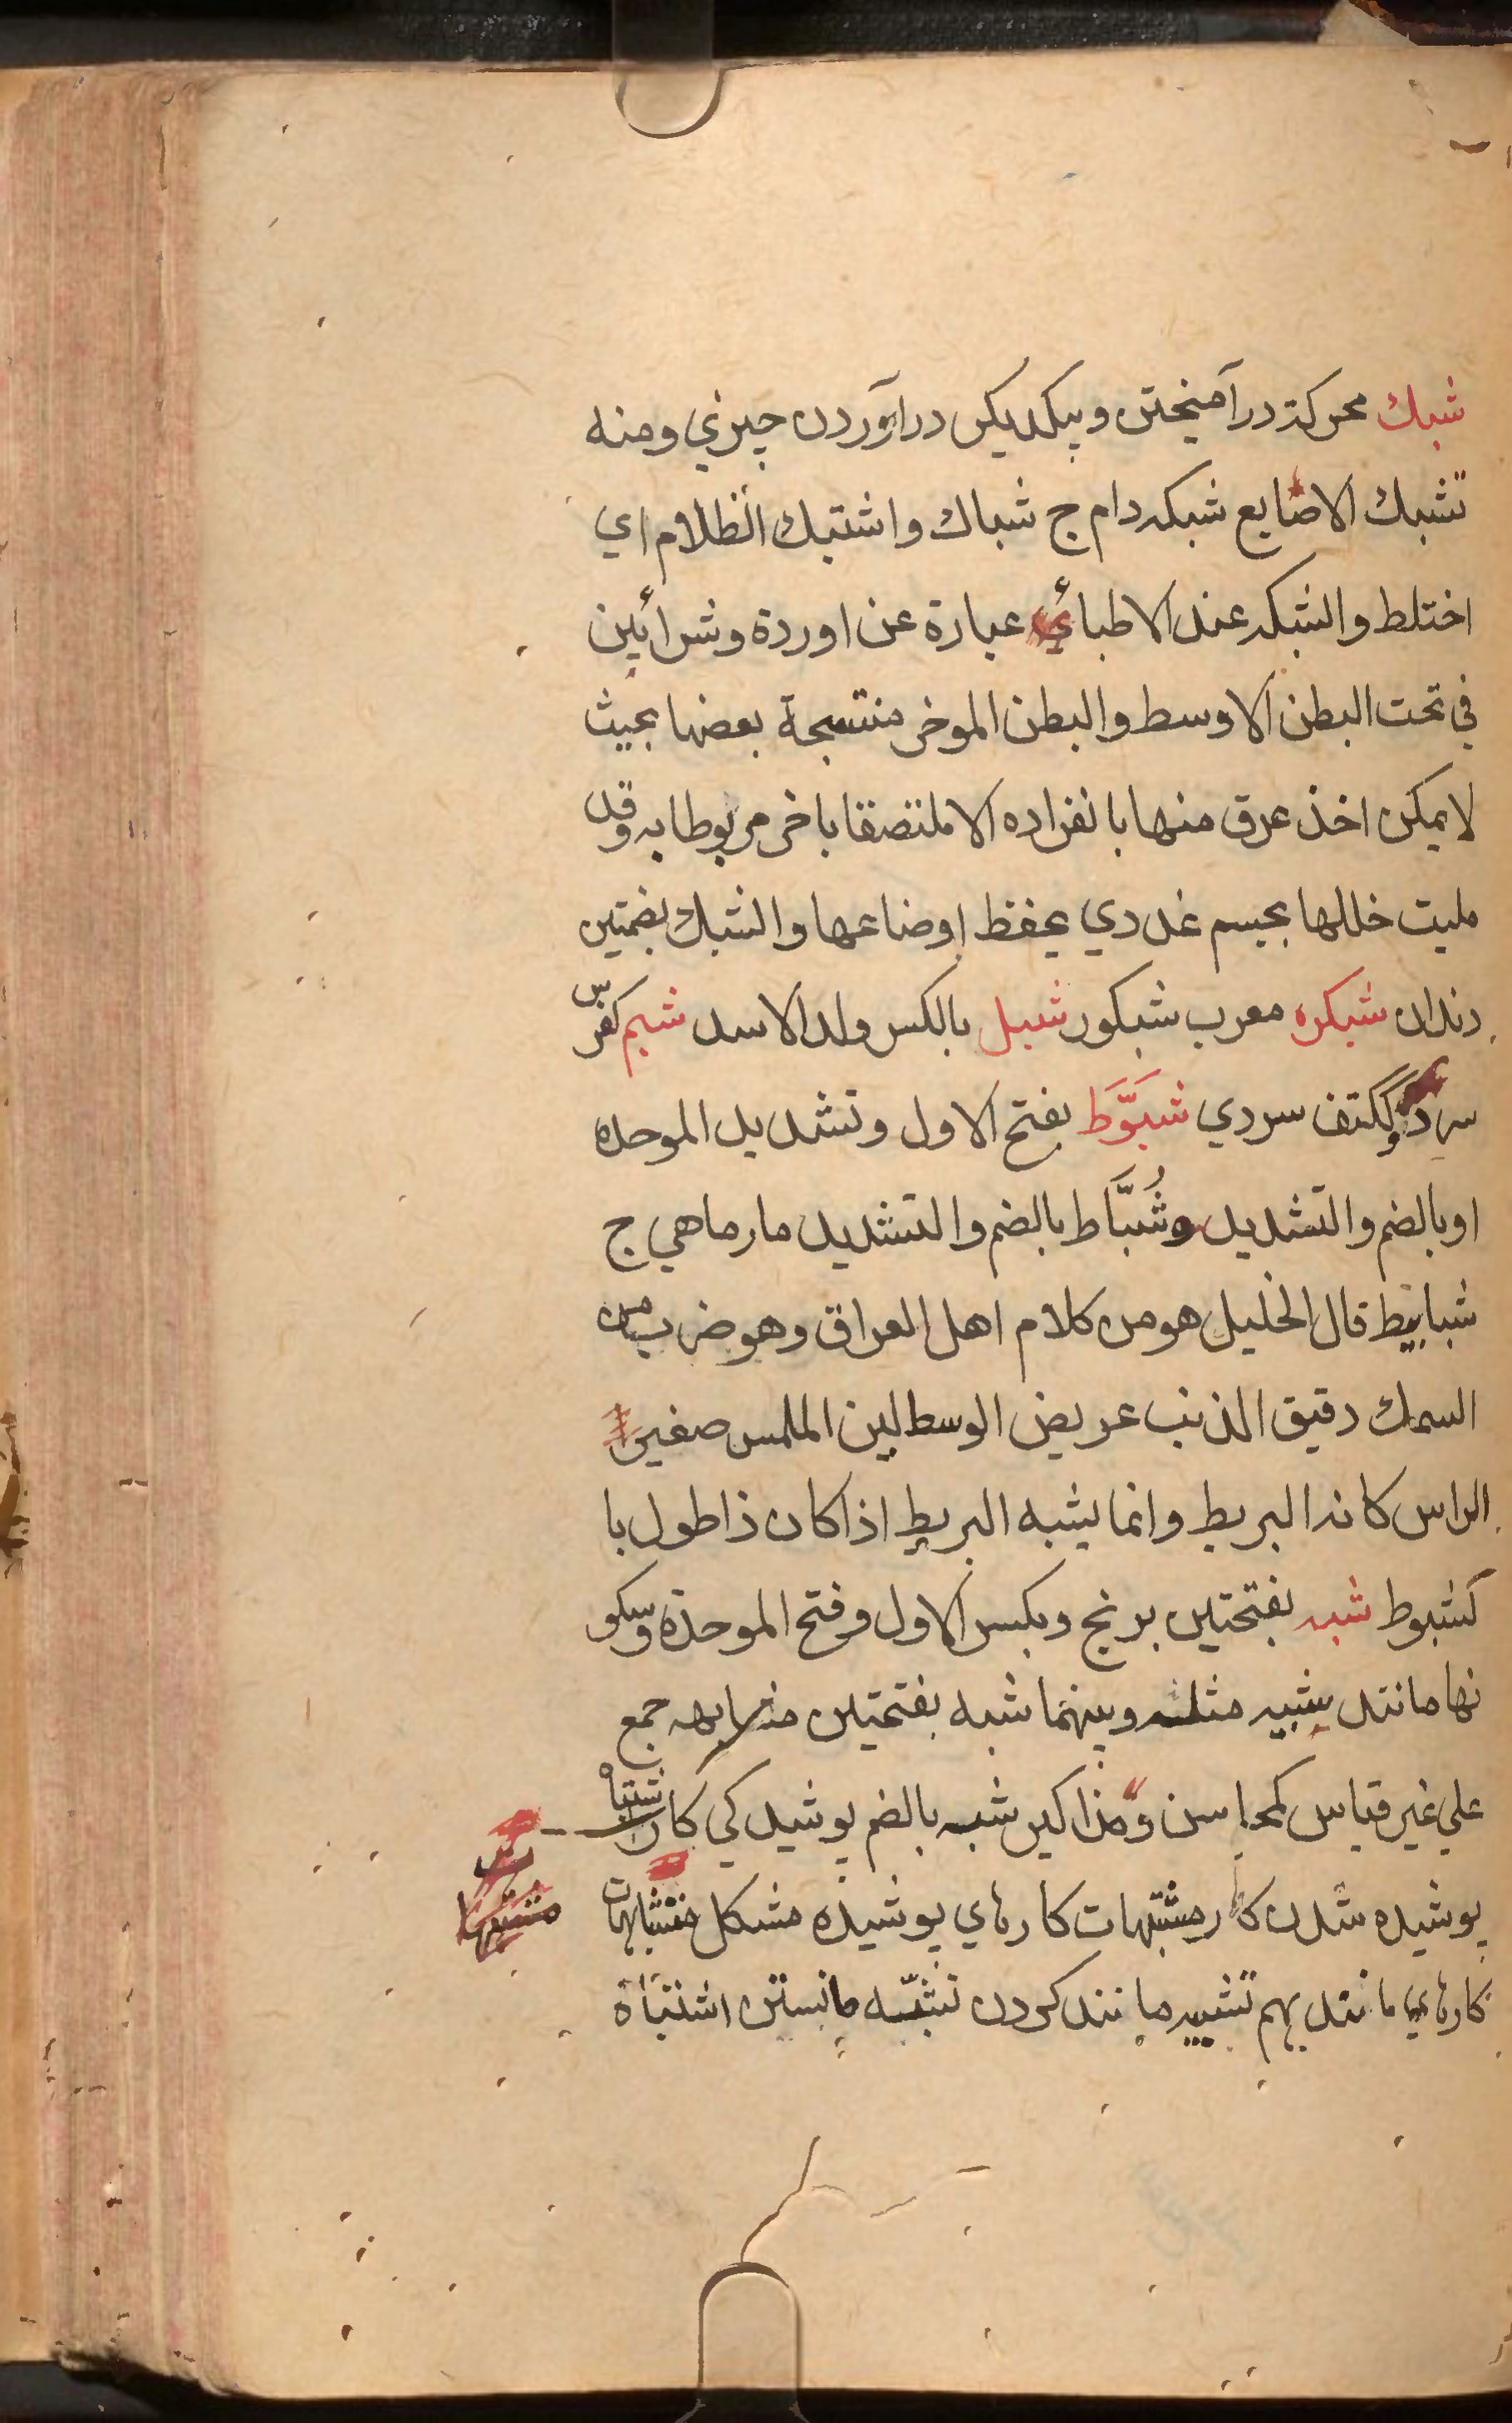 شبك محركة درآميختن وبيكديكر درآوردن چيزي ومنه
تشبك الاصابع شبكه دام ج شباك واشتبك الظلام اي
اختلط والشبكه عند الاطباء عبارة عن اوردة وشرائين
في تحت البطن الاوسط والبطن الموخر منتسجة بعضها بحيث
لا يمكن اخذ عرق منها بانفراده الا ملتصقا باخر مربوطا به وقد
مليت خللها بجسم غددي يحفظ اوضاعها والشبك بضمتين
دندان شبكره معرب شبكور شبل بالكسر ولد الاسد شبم كفرس
سرد وككتف سردي شَبَّوَّط بفتح الاول وتشديد الموحده
او بالضم والتشديد وشُبَّاط بالضم والتشديد مارماهي ج
شبابيط قال الخليل هو من كلام اهل العراق وهو ضرب من
السمك دقيق الذنب عريض الوسط لين الملمس صغير
الراس كانه البربط وانما يشبه البربط اذا كان ذا طول با
كشبوط شبه بفتحتين برنج وبكسر الاول وفتح الموحدة وسكو
نها مانند شبيه مثله وبينهما شبه بفتحتين مشابهه جمع
علي غير قياس كمحاسن ومذاكير شبه بالضم پوشيدكي كار اشتباه
پوشيده شدن كار مشتبهات كارهاي پوشيده مشكل متشابهات
كارهاي مانند بهم تشبيه مانند كردن تشبّه مانستن اشتباة